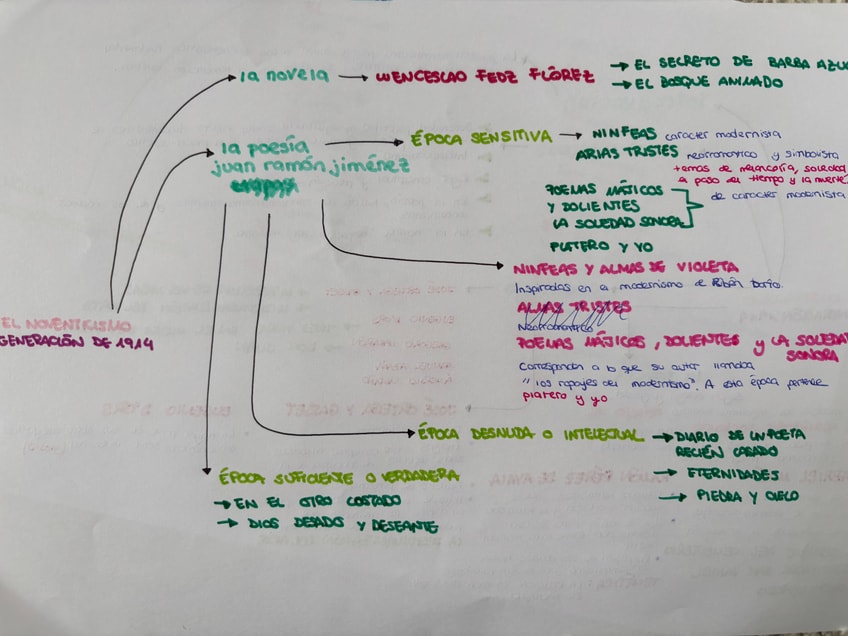 la novela → WENCESLAO FEDZ FLÓREZ → EL SECRETO DE BARBA AZUL
→ EL BOSQUE ANIMADO
la poesía
juan ramón jiménez
→ ÉPOCA SENSITIVA → NINFEAS caracter modernista
ARIAS TRISTES neorromántico y simbolista
temas de melancolía, soledad
paso del tiempo y la muerte
POEMAS MÁJICOS
Y DOLIENTES
LA SOLEDAD SONORA
de caracter modernista
PLATERO Y YO
NINFEAS Y ALMAS DE VIOLETA
Inspiradas en el modernismo de Rubén Darío.
ALMAS TRISTES
Neorromántica
POEMAS MÁJICOS, DOLIENTES y LA SOLEDAD
SONORA
Corresponden a lo que su autor llamaba
"los ropajes del modernismo". A esta época pertenece
platero y yo
EL NOVENTISMO
GENERACIÓN DE 1914
ÉPOCA DESNUDA O INTELECTUAL → DIARIO DE UN POETA
RECIÉN CASADO
→ ETERNIDADES
→ PIEDRA Y CIELO
ÉPOCA SUFICIENTE O VERDADERA
→ EN EL OTRO COSTADO
→ DIOS DESADO Y DESEANTE